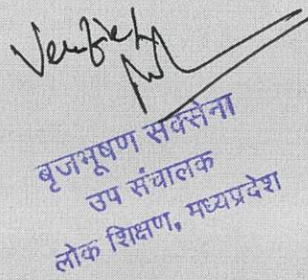 Verified
बृजभूषण सक्सेना
उप संचालक
लोक शिक्षण, मध्यप्रदेश